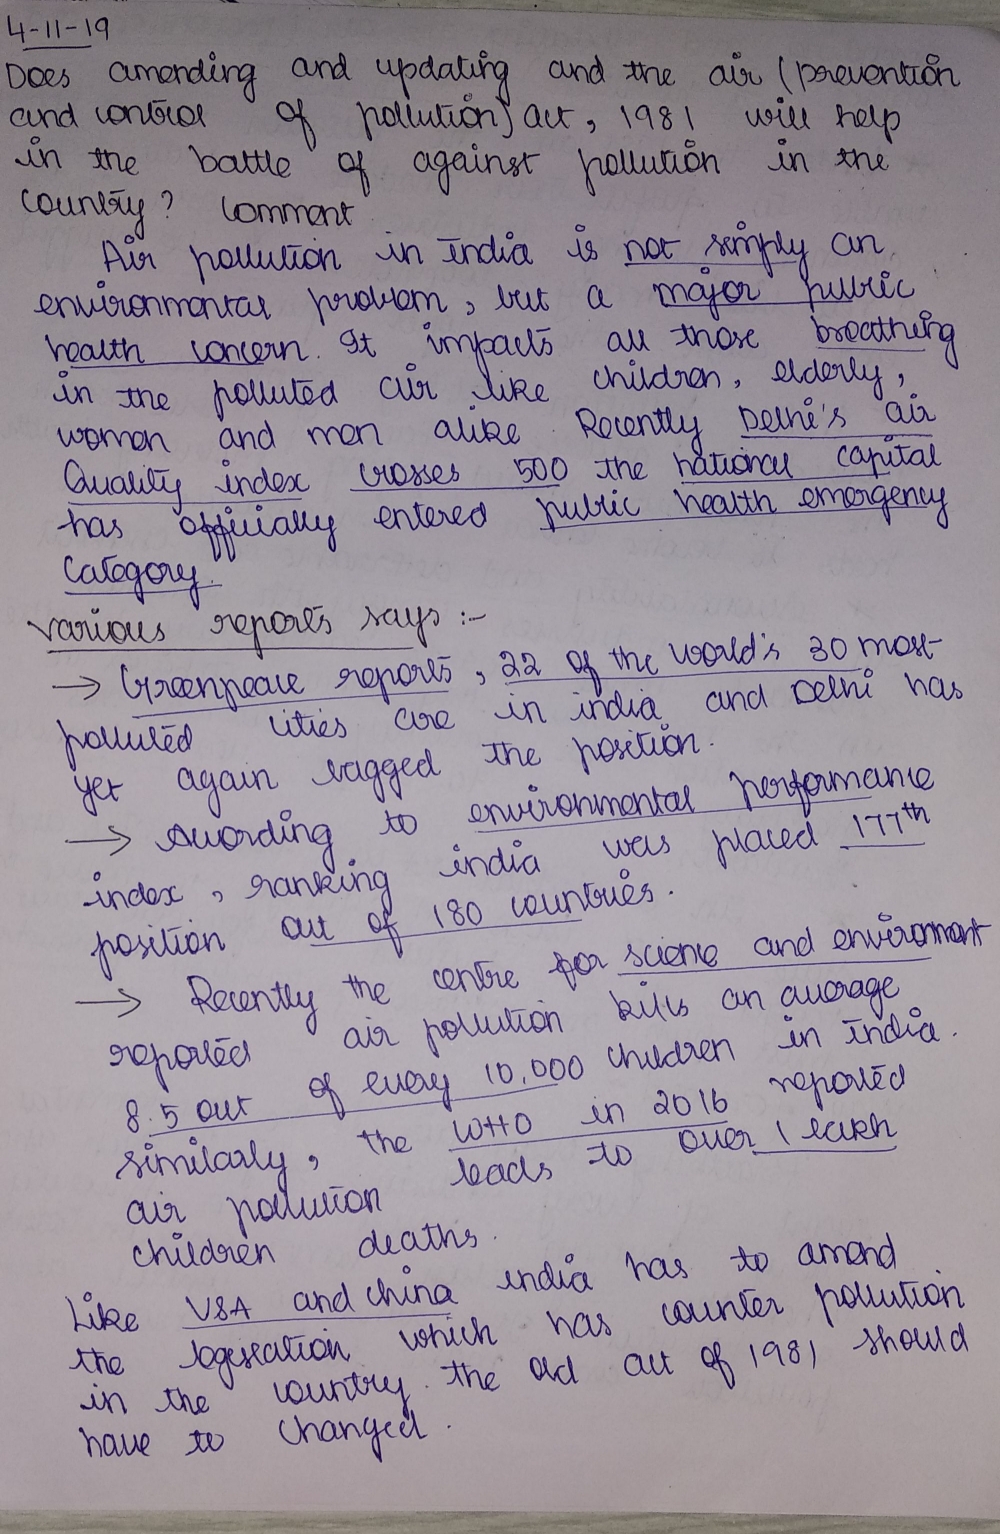 4-11-19
Does amending and updating and the air (prevention
and control of pollution) act, 1981 will help
in the battle of against pollution in the
country? comment
Air pollution in India is not simply an
environmental problem, but a major public
health concern. It impacts all those breathing
in the polluted air like children, elderly,
women and men alike. Recently Delhi's air
Quality index crosses 500 the national capital
has officially entered public health emergency
category.
various reports says :-
→ Greenpeace reports, 22 of the world's 30 most
polluted cities are in india and Delhi has
yet again bagged the position.
→ According to environmental performance
index, ranking india was placed 177th
position out of 180 countries.
→ Recently the centre for science and environment
reported air pollution kills an average
8.5 out of every 10,000 children in India.
similarly, the WHO in 2016 reported
air pollution leads to over 1 lakh
children deaths.
Like USA and china india has to amend
the legislation which has counter pollution
in the country. the old act of 1981 should
have to changed.